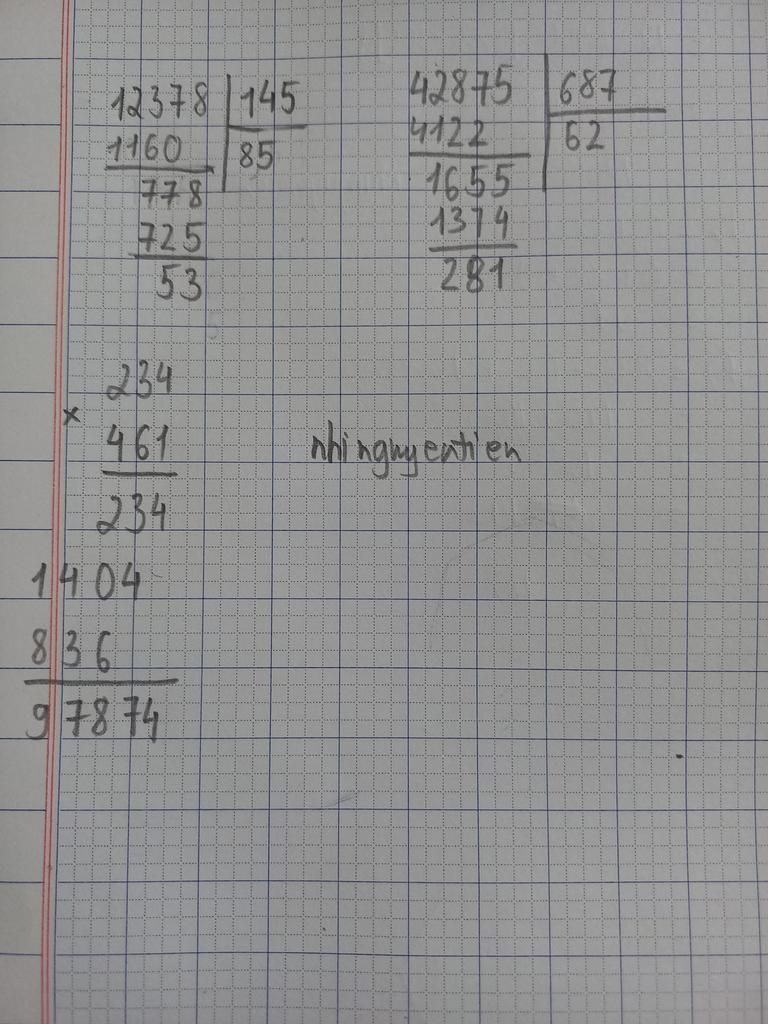 12378 145
1160 85
778
725
53
42875 687
4122 62
1655
1374
281
234
×
461
234
1404
836
97874
nhinguyentien